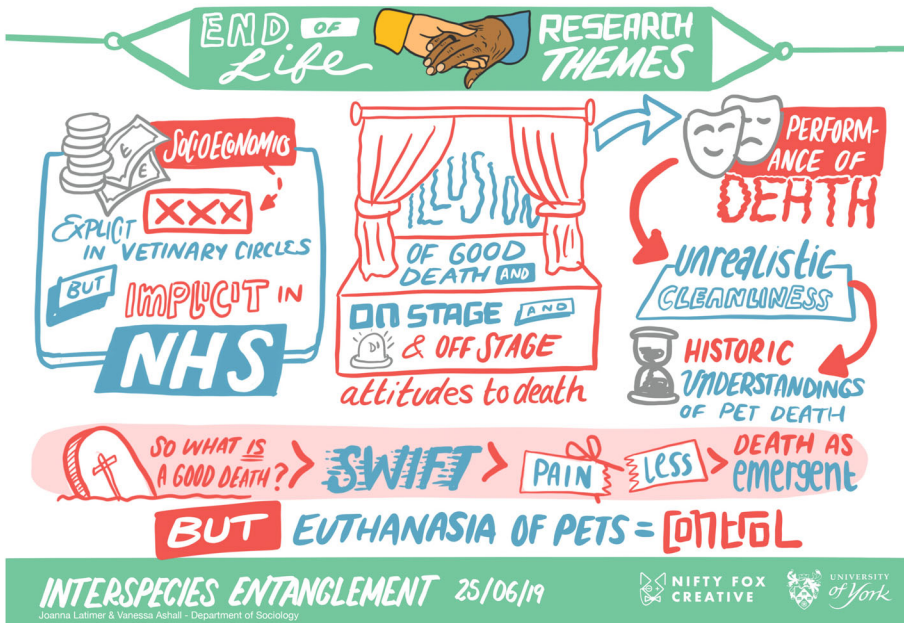 END OF Life
RESEARCH THEMES
SOCIOECONOMICS
XXX
EXPLICIT
IN VETINARY CIRCLES
BUT
IMPLICIT IN
NHS
ILLUSION
OF GOOD
DEATH AND
ON STAGE AND
& OFF STAGE
attitudes to death
PERFORM-
ANCE OF
DEATH
unrealistic
CLEANLINESS
HISTORIC
UNDERSTANDINGS
OF PET DEATH
SO WHAT IS
A GOOD DEATH?
> SWIFT > PAIN LESS >
DEATH AS
emergent
BUT EUTHANASIA OF PETS = CONTROL
INTERSPECIES ENTANGLEMENT 25/06/19
Joanna Latimer & Vanessa Ashall - Department of Sociology
NIFTY FOX
CREATIVE
UNIVERSITY
of York